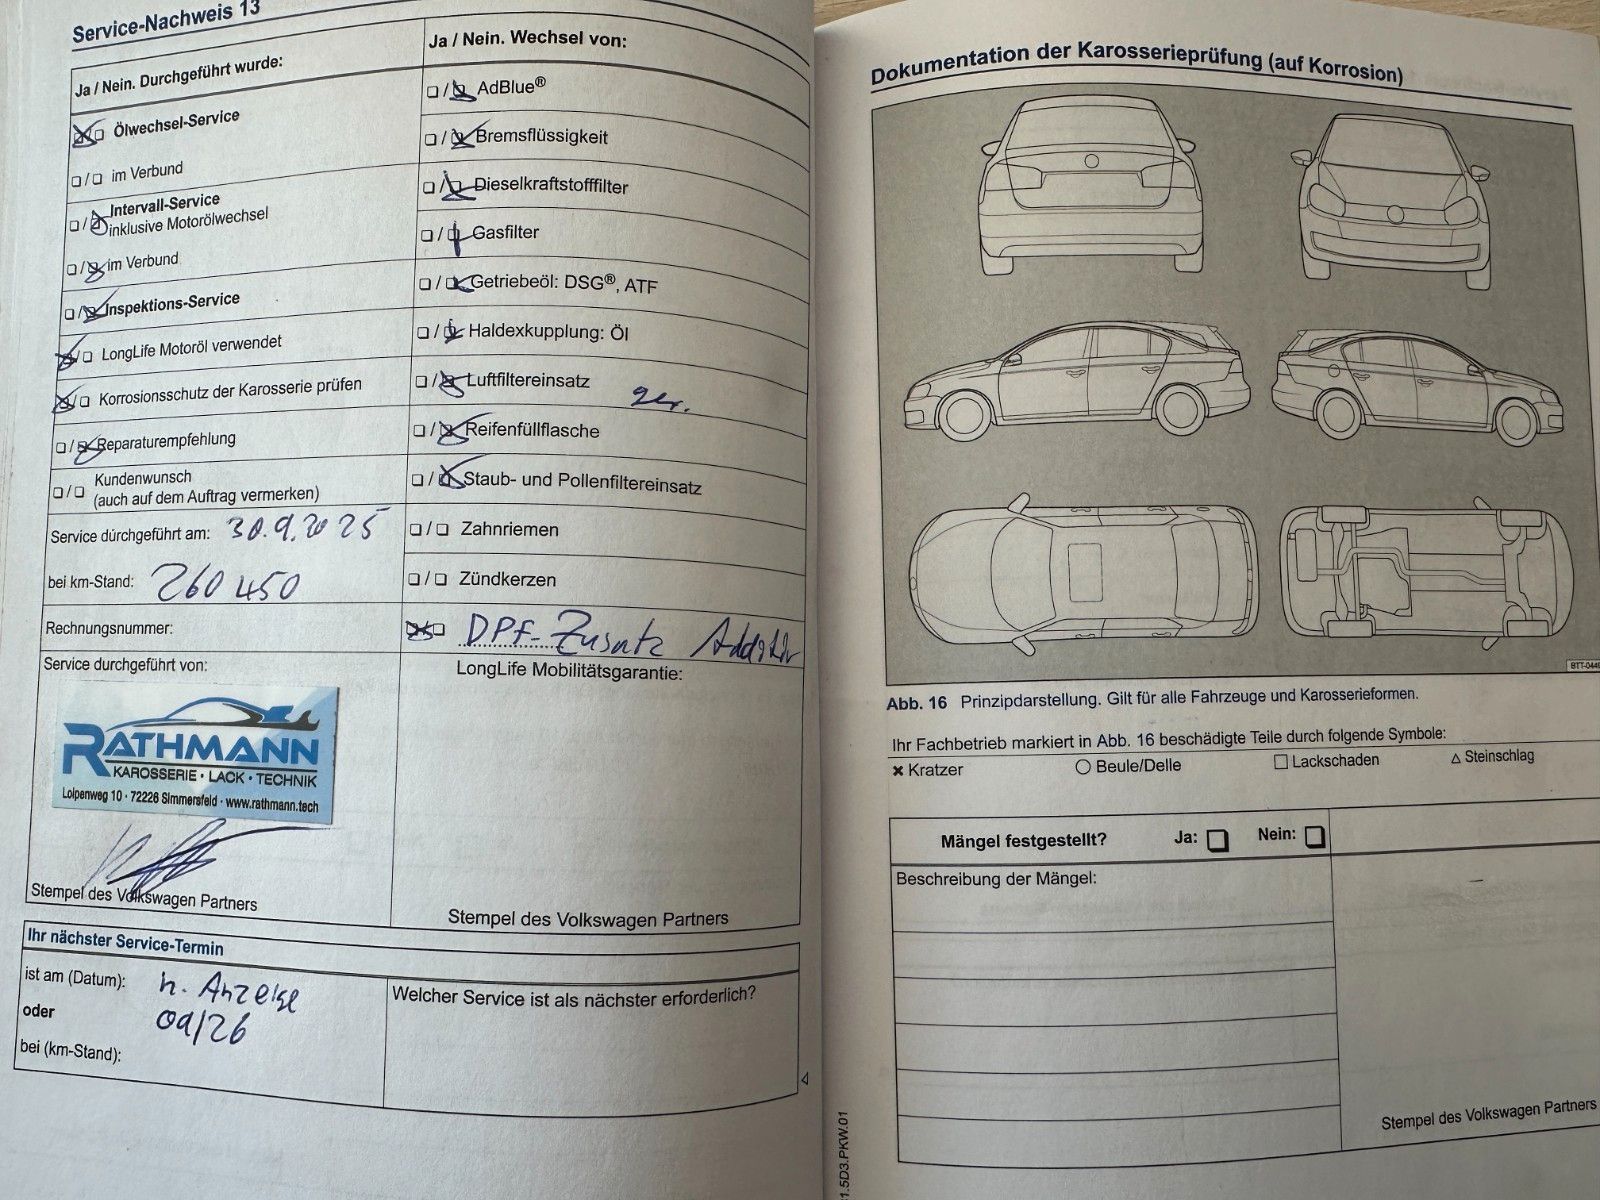 Service-Nachweis 13
Ja / Nein. Durchgeführt wurde:
☒/☐ Ölwechsel-Service
☐/☐ im Verbund
☐/☒ Intervall-Service
inklusive Motorölwechsel
☐/☒ im Verbund
☐/☒ Inspektions-Service
☒/☐ LongLife Motoröl verwendet
☒/☐ Korrosionsschutz der Karosserie prüfen
☐/☒ Reparaturempfehlung
☐/☐ Kundenwunsch
(auch auf dem Auftrag vermerken)
Service durchgeführt am: 30.9.2025
bei km-Stand: 260 450
Rechnungsnummer:
Service durchgeführt von:
RATHMANN
KAROSSERIE · LACK · TECHNIK
Loipenweg 10 · 72226 Simmersfeld · www.rathmann.tech
Stempel des Volkswagen Partners
Ja / Nein. Wechsel von:
☐/☒ AdBlue®
☐/☒ Bremsflüssigkeit
☐/☒ Dieselkraftstofffilter
☐/☒ Gasfilter
☐/☒ Getriebeöl: DSG®, ATF
☐/☒ Haldexkupplung: Öl
☐/☒ Luftfiltereinsatz ger.
☐/☒ Reifenfüllflasche
☐/☒ Staub- und Pollenfiltereinsatz
☐/☐ Zahnriemen
☐/☐ Zündkerzen
☒/☐ DPF-Zusatz Additiv
LongLife Mobilitätsgarantie:
Stempel des Volkswagen Partners
Ihr nächster Service-Termin
ist am (Datum): n. Anzeige
oder 09/26
bei (km-Stand):
Welcher Service ist als nächster erforderlich?
Dokumentation der Karosserieprüfung (auf Korrosion)
Abb. 16 Prinzipdarstellung. Gilt für alle Fahrzeuge und Karosserieformen.
Ihr Fachbetrieb markiert in Abb. 16 beschädigte Teile durch folgende Symbole:
× Kratzer ○ Beule/Delle □ Lackschaden △ Steinschlag
Mängel festgestellt? Ja: ☐ Nein: ☐
Beschreibung der Mängel:
Stempel des Volkswagen Partners
1.5D3.PKW.01